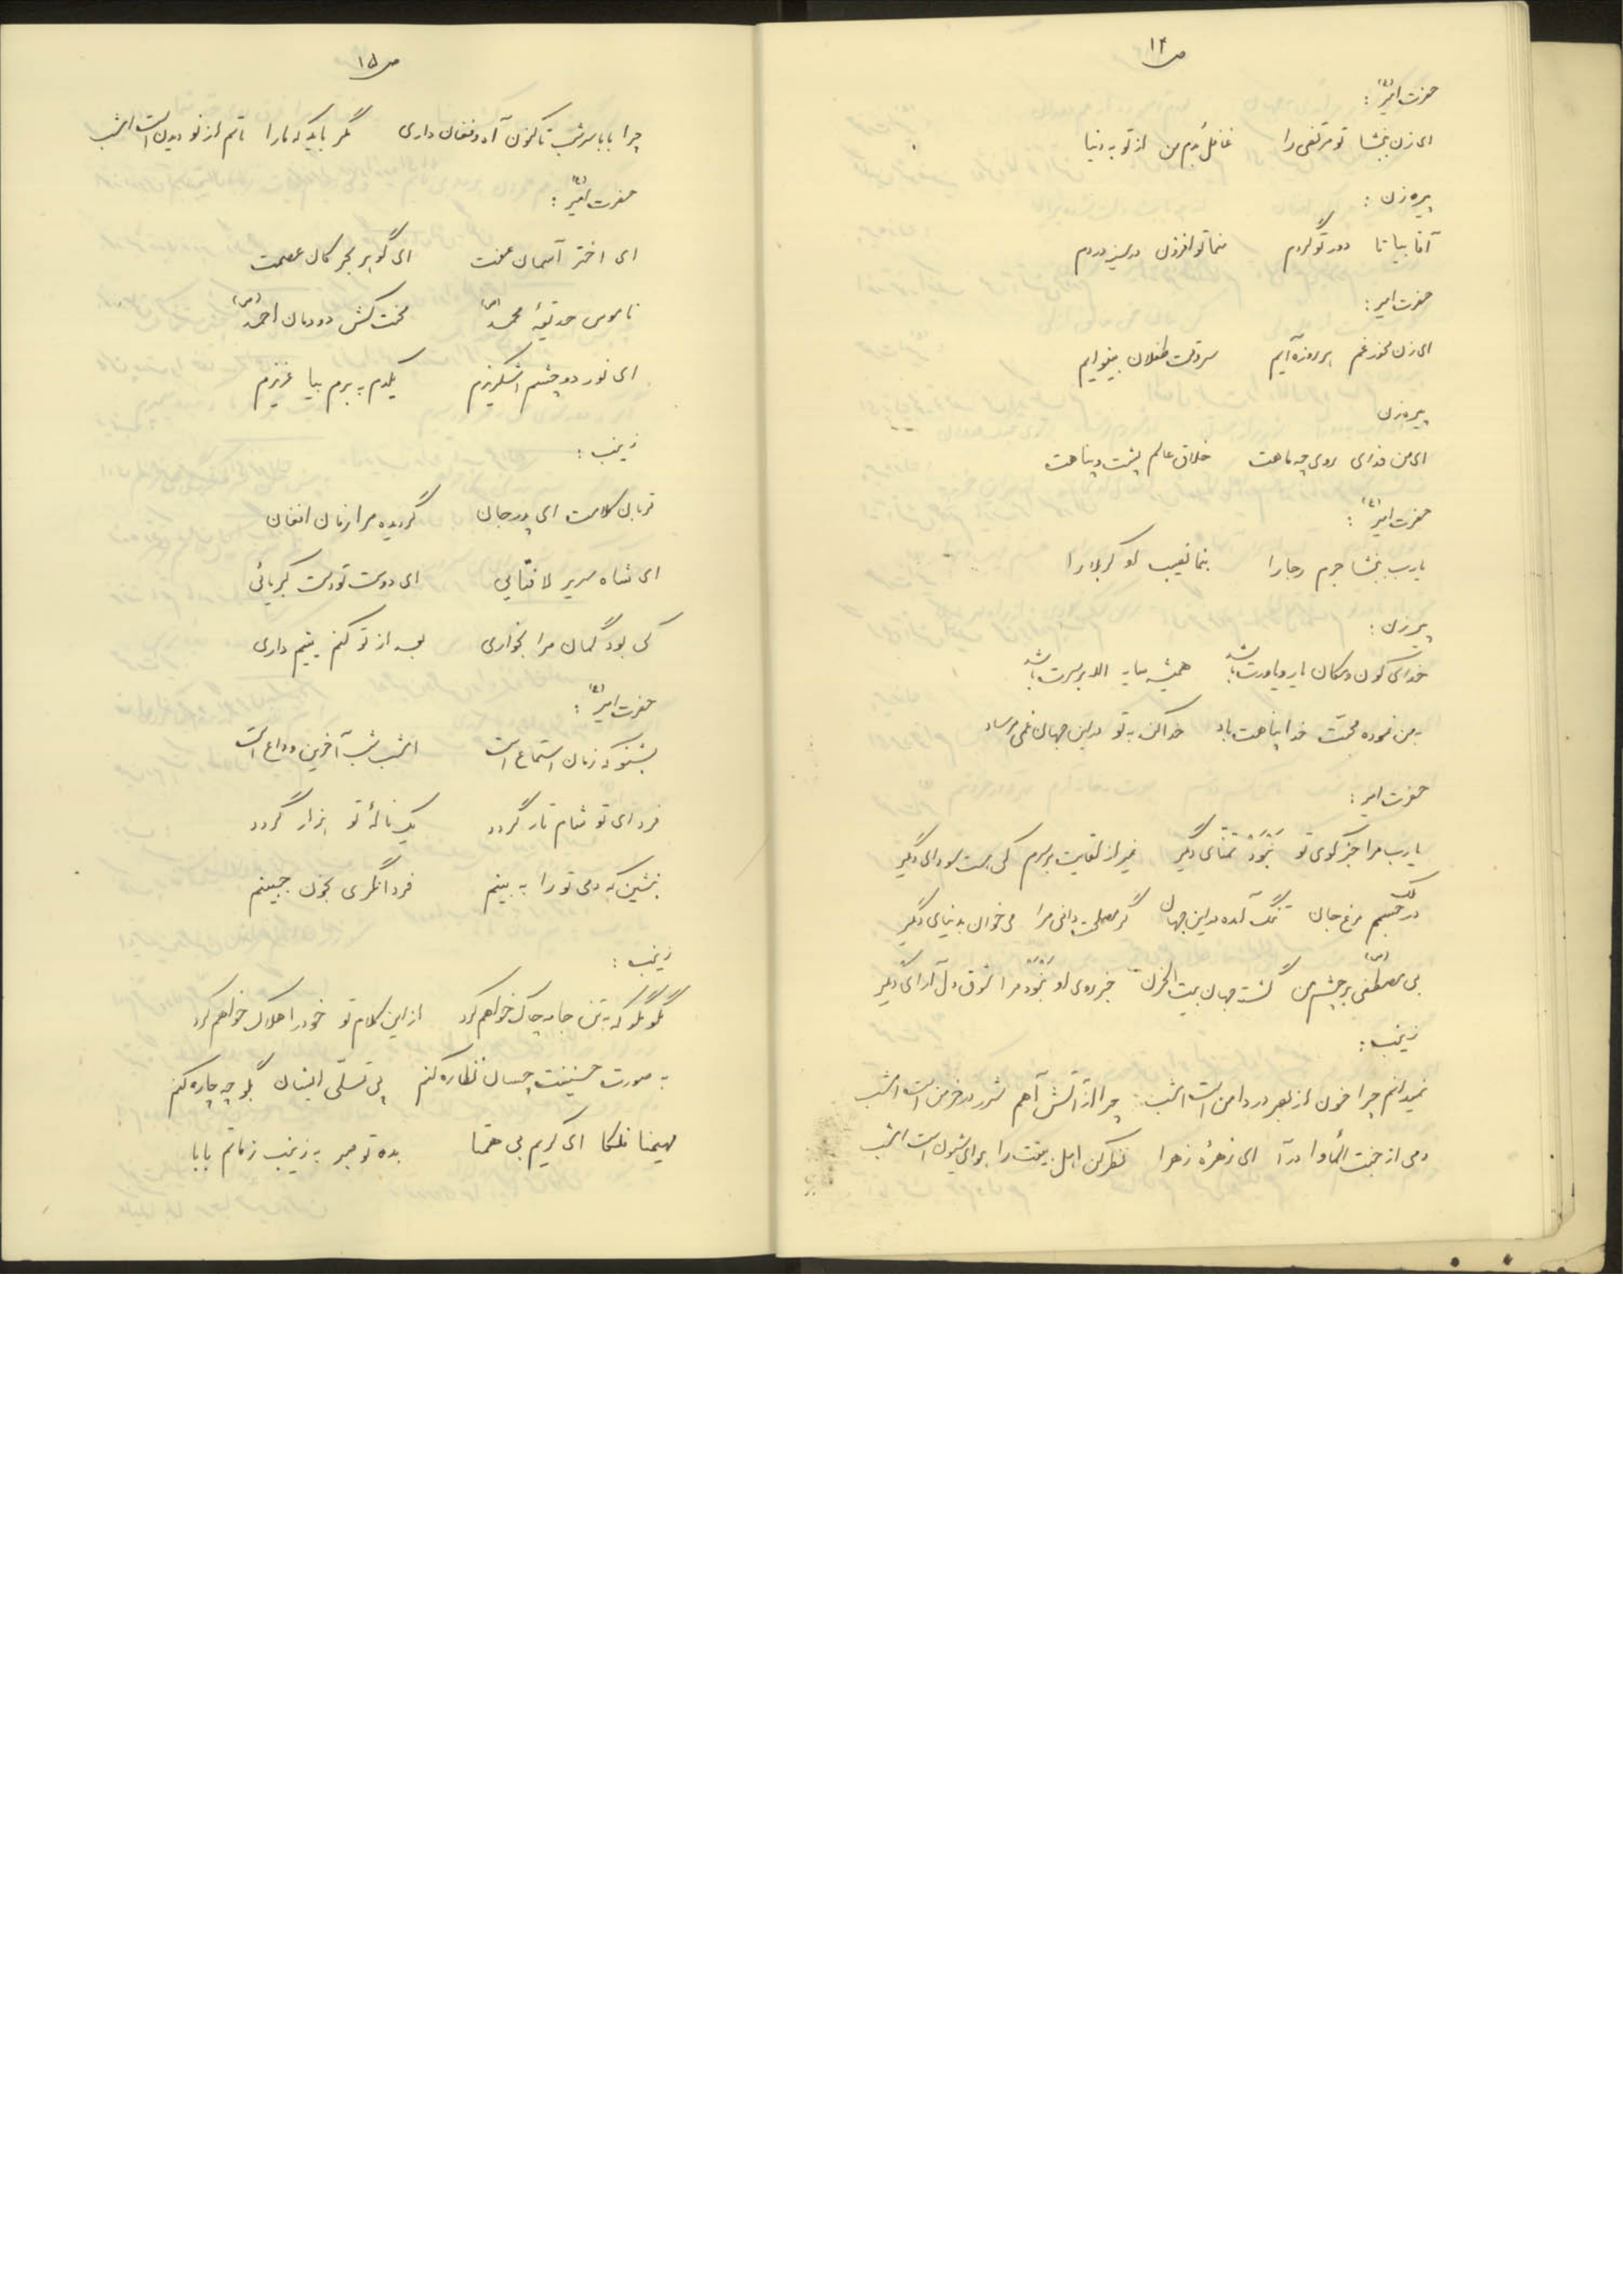 ص ۱۴
حضرت امیر(ع) :
ای زن ببخشا تو مرتضی را غافل بُدم من از تو به دنیا
پیره زن :
آقا بیا تا دور تو گردم منما تو افزون در سینه دردم
حضرت امیر :
ای زن مخور غم هر روزه آیم سروقت طفلان بینوایم
پیره زن
ای من فدای روی چه ماهت خلاق عالم پشت و پناهت
حضرت امیر(ع) :
یارب ببخشا جرم رجا را بنما نصیب او کربلا را
پیرزن :
خدای کون و مکان یار و یاورت باشد همیشه سایه الا بر سرت باشد
به من نموده محبت خدا پناهت باد خدا کند به تو در این جهان غمی مرساد
حضرت امیر :
یارب مرا جز کوی تو نَبْوَد تمنّای دگر غیر از لقایت بر سرم کی هست سودای دگر
در ملک جسمم مرغ جان تنگ آمده در این جهان گر مصلحت دانی مرا می خوان به دنیای دگر
بی مصطفی(ص) بر چشم من گشته جهان بیت الحزن جز روی او نَبْوَد مرا شوق دل آرای دگر
زینب :
نمیدانم چرا خون از بصر در دامن است امشب چرا از آتش آهم شرر در خرمن است امشب
دمی از جنت المأوا درآ ای زهرهٔ زهرا نظر کن اهل بیتت را برای شیون است امشب
ص ۱۵
چرا بابا سرشب تاکنون آه و فغان داری مگر بابا که ما را ماتم از نو دیدن است امشب
حضرت امیر(ع) :
ای اختر آسمان عفت ای گوهر بحر کان عصمت
ناموس حدیقهٔ محمد(ص) محنت کش دودمان احمد(ص)
ای نور دو چشم اشکریزم یکدم به برم بیا عزیزم
زینب :
قربان کلامت ای پدر جان گردیده مرا زمان افغان
ای شاه سریر لافتایی ای دست تو دست کبریائی
کی بود گمان مرا بخواری بعد از تو کنم یتیم داری
حضرت امیر(ع) :
بشنو که زمان استماع است امشب شب آخرین وداع است
فردای تو شام تار گردد یک نالهٔ تو هزار گردد
بنشین که دمی تو را به بینم فردا نگری بخون جبینم
زینب :
مگو مگو که به تن جامه چاک خواهم کرد از این کلام تو خود را هلاک خواهم کرد
به صورت حسنینت چسان نظاره کنم پی تسلّی ایشان بگو چه چاره کنم
مهیمنا ملکا ای کریم بی همتا بده تو صبر به زینب ز ماتم بابا